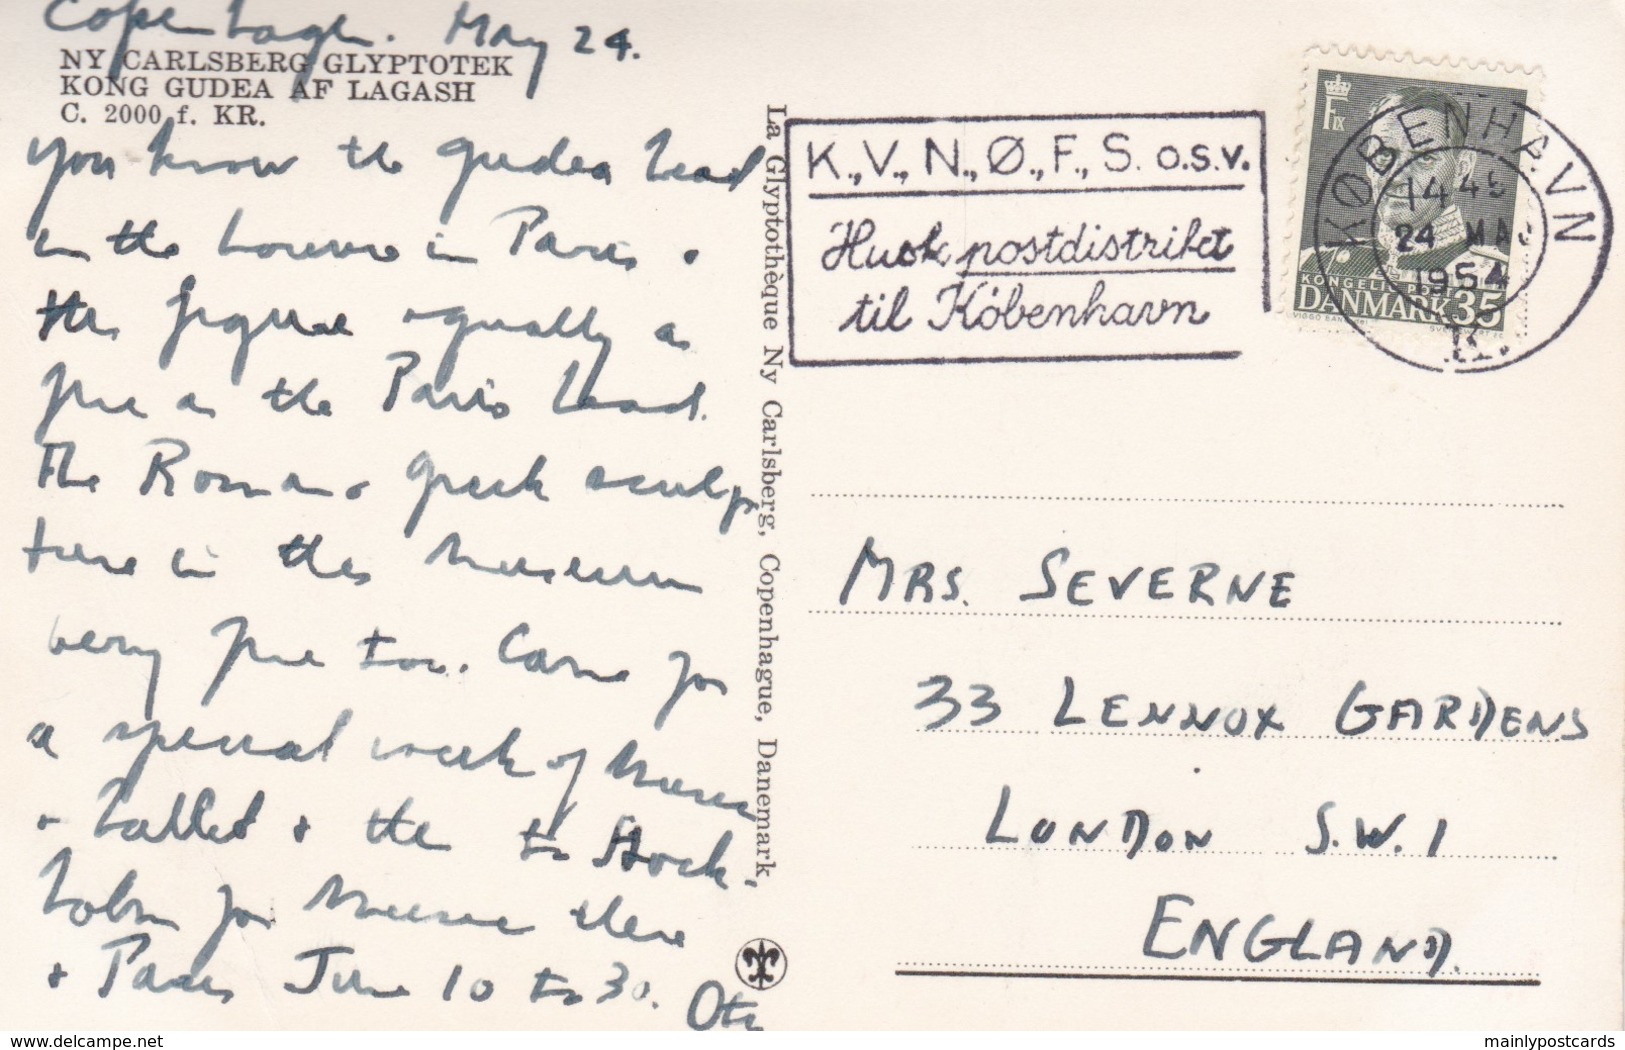 Copenhagen. May 24.
NY CARLSBERG GLYPTOTEK
KONG GUDEA AF LAGASH
C. 2000 f. KR.
You know the Gudea head
in the Louvre in Paris.
This figure equally as
fine as the Paris head.
The Roman & Greek sculp
ture in this museum
very fine too. Came for
a special week of music
& ballet & the to Stock-
holm for music there
& Paris June 10 to 30.
La Glyptothèque Ny Carlsberg, Copenhague, Danemark,
K., V., N., Ø., F., S. o.s.v.
Husk postdistriktet
til København
KØBENHAVN
1445
24 MA
1954
K.
F IX
KONGELIG POST
DANMARK 35
MRS. SEVERNE
33 LENNOX GARDENS
LONDON S.W.1
ENGLAND.
mainlypostcards
www.delcampe.net